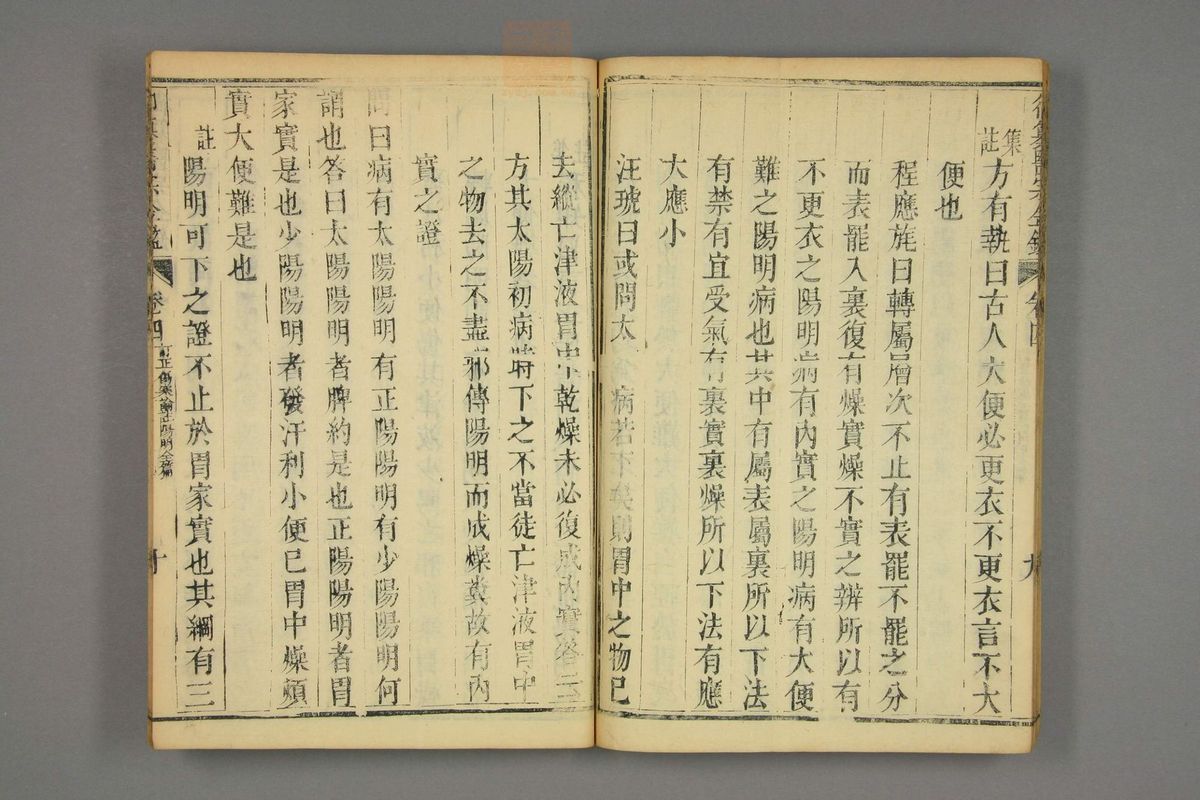 集註方有執曰古人大便必更衣不更衣言不大
便也
程應旄曰轉屬層次不止有表罷不罷之分
而表罷入裏復有燥實燥不實之辨所以有
不更衣之陽明病有內實之陽明病有大便
難之陽明病也其中有屬表屬裏所以下法
有禁有宜受氣有裏實裏燥所以下法有應
大應小
汪琥曰或問太 病若不 則胃中之物已
去縱亡津液胃中乾燥未必復成內實答云
方其太陽初病時下之不當徒亡津液胃中
之物去之不盡邪傳陽明而成燥糞故有內
實之證
問曰病有太陽陽明有正陽陽明有少陽陽明何
謂也答曰太陽陽明者脾約是也正陽陽明者胃
家實是也少陽陽明者發汗利小便已胃中燥煩
實大便難是也
註陽明可下之證不止於胃家實也其綱有三
卷四 訂正傷寒論註陽明全篇 十
卷四 九